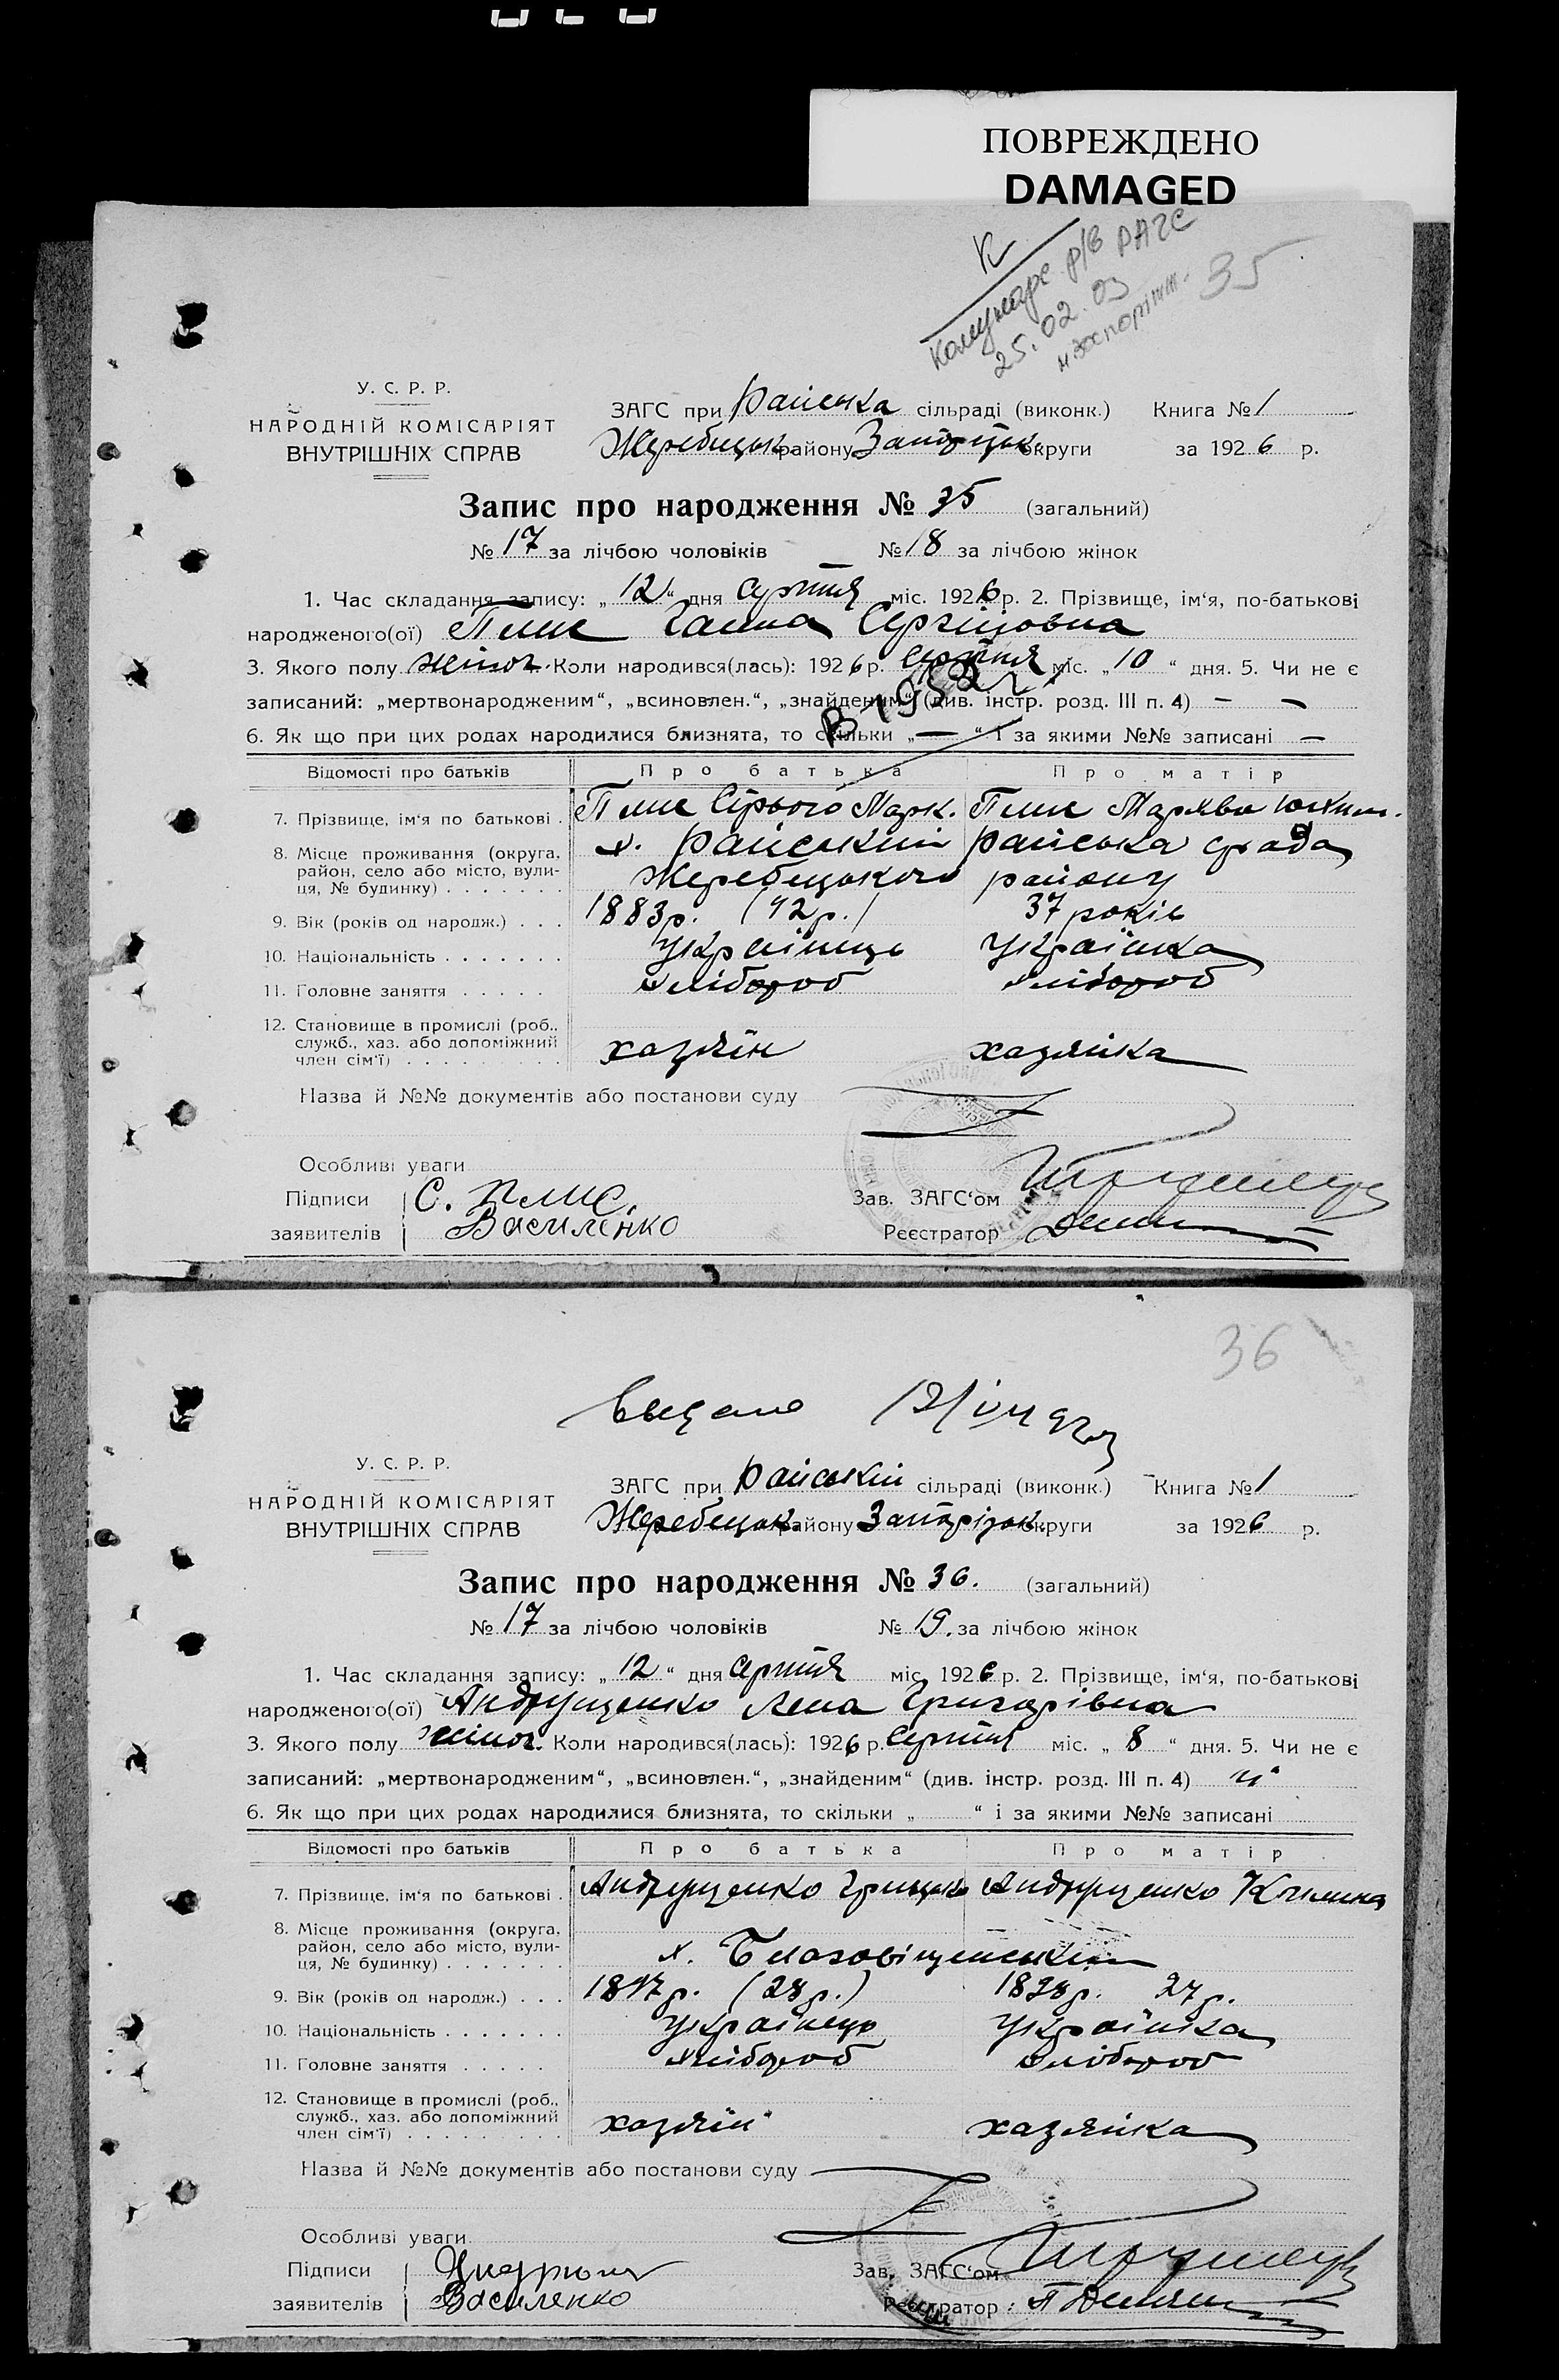 ПОВРЕЖДЕНО
DAMAGED
К
р/в РАГС
25.02.03
35
У. С. Р. Р.
НАРОДНІЙ КОМІСАРІЯТ
ВНУТРІШНІХ СПРАВ
ЗАГС при Райська сільраді (виконк.) Книга № 1
Жеребецьк. району округи за 1926 р.
Запис про народження № 35 (загальний)
№ 17 за лічбою чоловіків № 18 за лічбою жінок
1. Час складання запису: „12“ дня серпня міс. 1926 р. 2. Прізвище, ім‘я, по-батькові
народженого(ої) Плис Ганна
3. Якого полу жіноч. Коли народився(лась): 1926 р. серпня міс. „10“ дня. 5. Чи не є
записаний: „мертвонародженим“, „всиновлен.“, „знайденим“ (див. інстр. розд. III п. 4) — —
6. Як що при цих родах народилися близнята, то скільки „—“ і за якими №№ записані —
Відомості про батьків Про батька Про матір
7. Прізвище, ім‘я по батькові . Плис Марк. Плис
8. Місце проживання (округа, х. Райський Райська
район, село або місто, вули-
ця, № будинку) . . . . . . . Жеребецького району
9. Вік (років од народж.) . . . 1883р. (42р.) 37 років
10. Національність . . . . . . . Українець Українка
11. Головне заняття . . . . . хлібороб хлібороб
12. Становище в промислі (роб.,
служб., хаз. або допоміжний
член сім‘ї) . . . . . . . . . хазяїн хазяйка
Назва й №№ документів або постанови суду
Особливі уваги
Підписи С. Плис Зав. ЗАГС‘ом
заявителів Василенко Реєстратор
36
У. С. Р. Р.
НАРОДНІЙ КОМІСАРІЯТ
ВНУТРІШНІХ СПРАВ
ЗАГС при Райській сільраді (виконк.) Книга № 1
Жеребецьк. району Запорізьк. округи за 1926 р.
Запис про народження № 36. (загальний)
№ 17 за лічбою чоловіків № 19. за лічбою жінок
1. Час складання запису: „12“ дня серпня міс. 1926 р. 2. Прізвище, ім‘я, по-батькові
народженого(ої) Андрущенко Лена Григорівна
3. Якого полу жіноч. Коли народився(лась): 1926 р. серпня міс. „8“ дня. 5. Чи не є
записаний: „мертвонародженим“, „всиновлен.“, „знайденим“ (див. інстр. розд. III п. 4)
6. Як що при цих родах народилися близнята, то скільки „ “ і за якими №№ записані
Відомості про батьків Про батька Про матір
7. Прізвище, ім‘я по батькові . Андрущенко Грицько Андрущенко Килина
8. Місце проживання (округа,
район, село або місто, вули-
ця, № будинку) . . . . . . . х.
9. Вік (років од народж.) . . . (28р.) 27р.
10. Національність . . . . . . . Українець Українка
11. Головне заняття . . . . . хлібороб хлібороб
12. Становище в промислі (роб.,
служб., хаз. або допоміжний
член сім‘ї) . . . . . . . . . хазяїн хазяйка
Назва й №№ документів або постанови суду
Особливі уваги
Підписи Зав. ЗАГС‘ом
заявителів Василенко Реєстратор